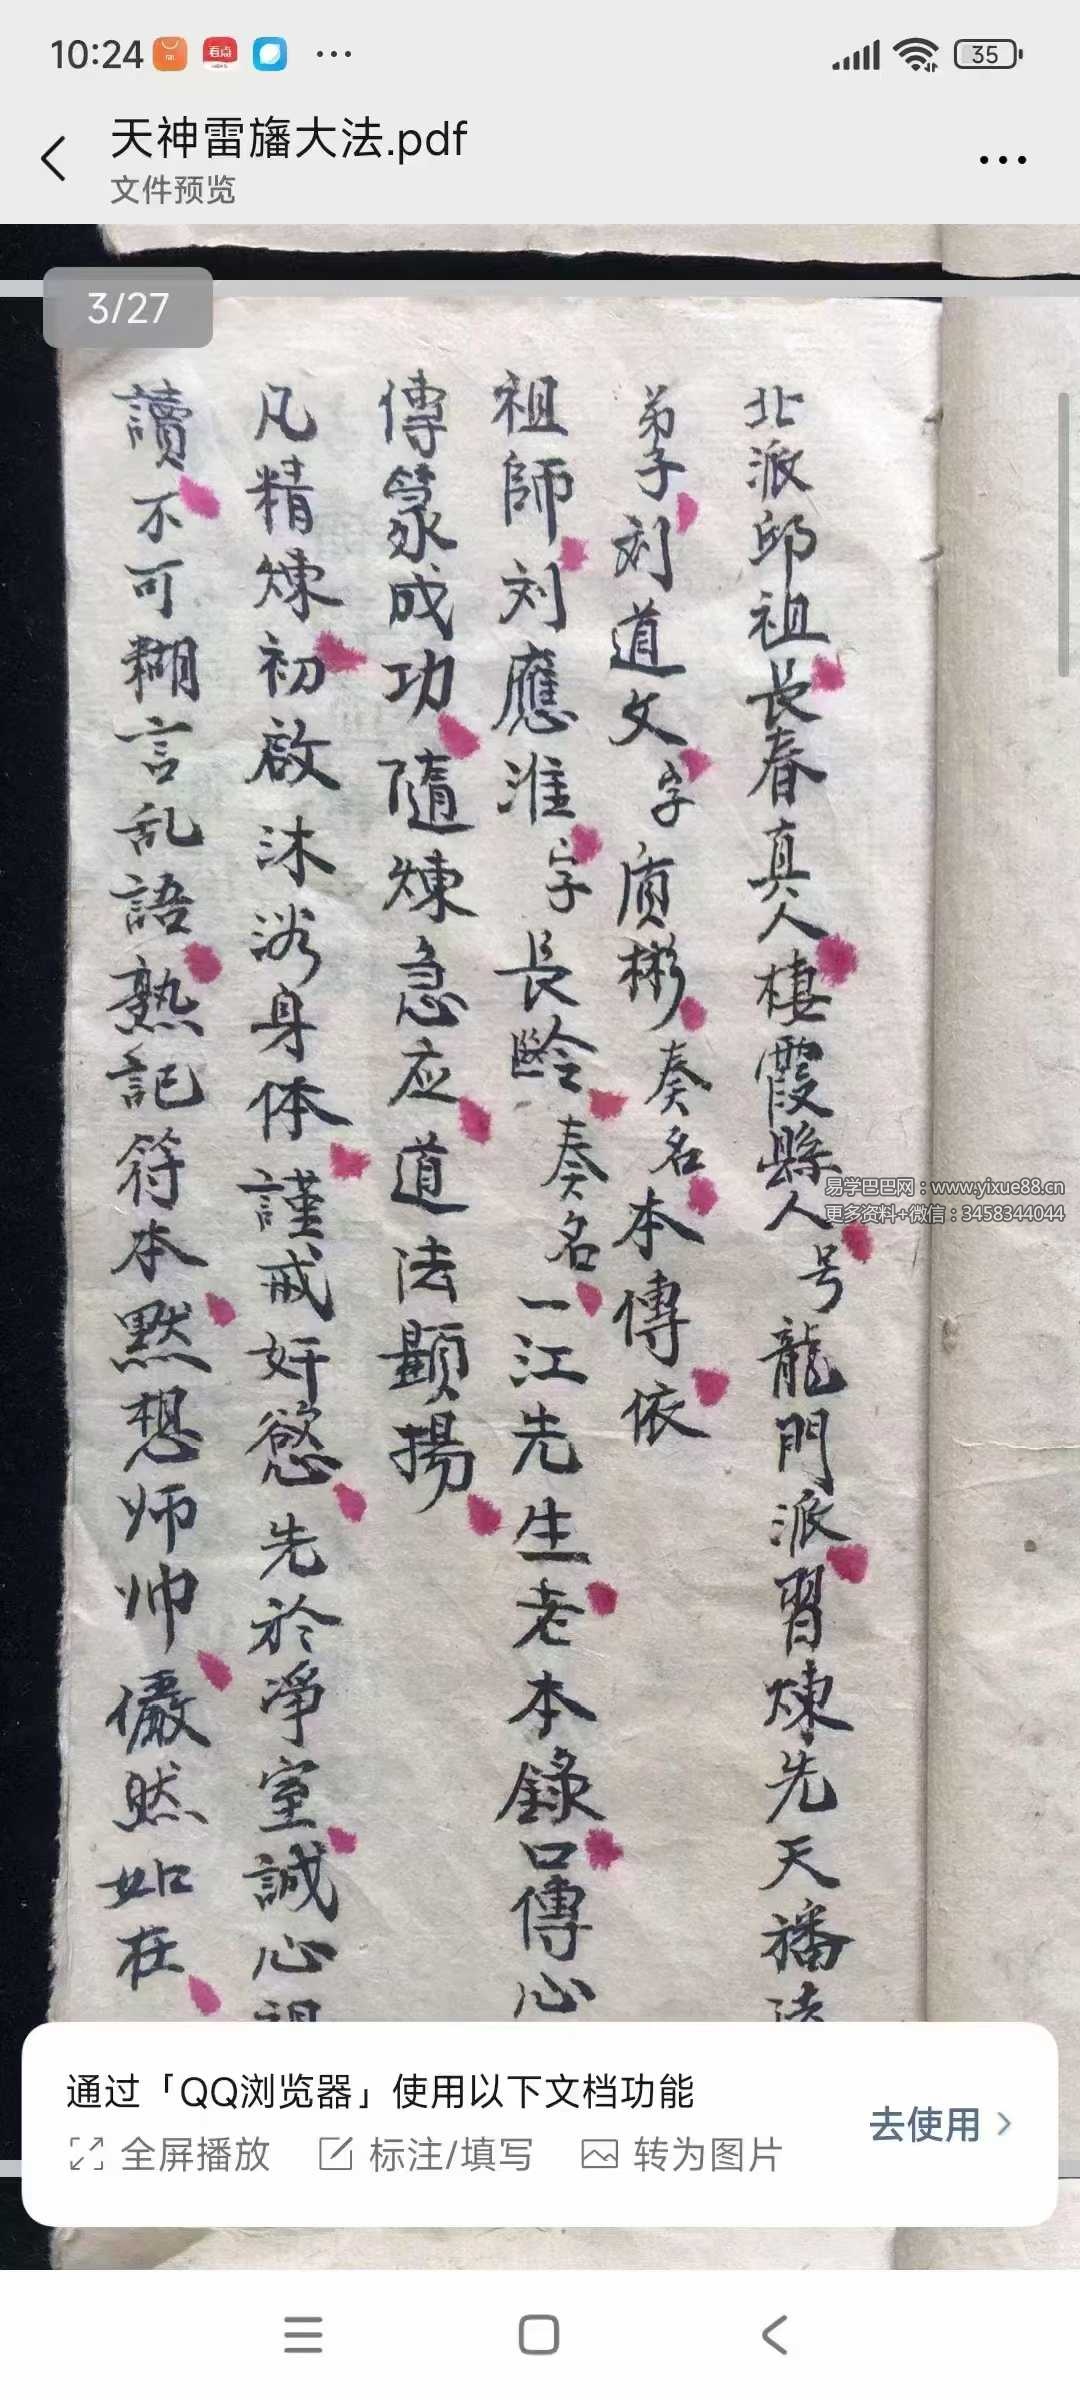 10:24
看点
35
天神雷旛大法.pdf
文件预览
3/27
北派邱祖长春真人棲霞縣人号龍門派習煉先天旛法
弟子刘道文字质彬奏名本傳依
祖師刘應淮字長齡奏名一江先生老本錄口傳心
傳篆成功隨煉急应道法顕揚
凡精煉初啟沐浴身体謹戒奸慾先於净室誠心
讀不可糊言乱語熟記符本默想师帅儼然如在
易学巴巴网：www.yixue88.cn
更多资料+微信：3458344044
通过「QQ浏览器」使用以下文档功能
全屏播放 标注/填写 转为图片
去使用